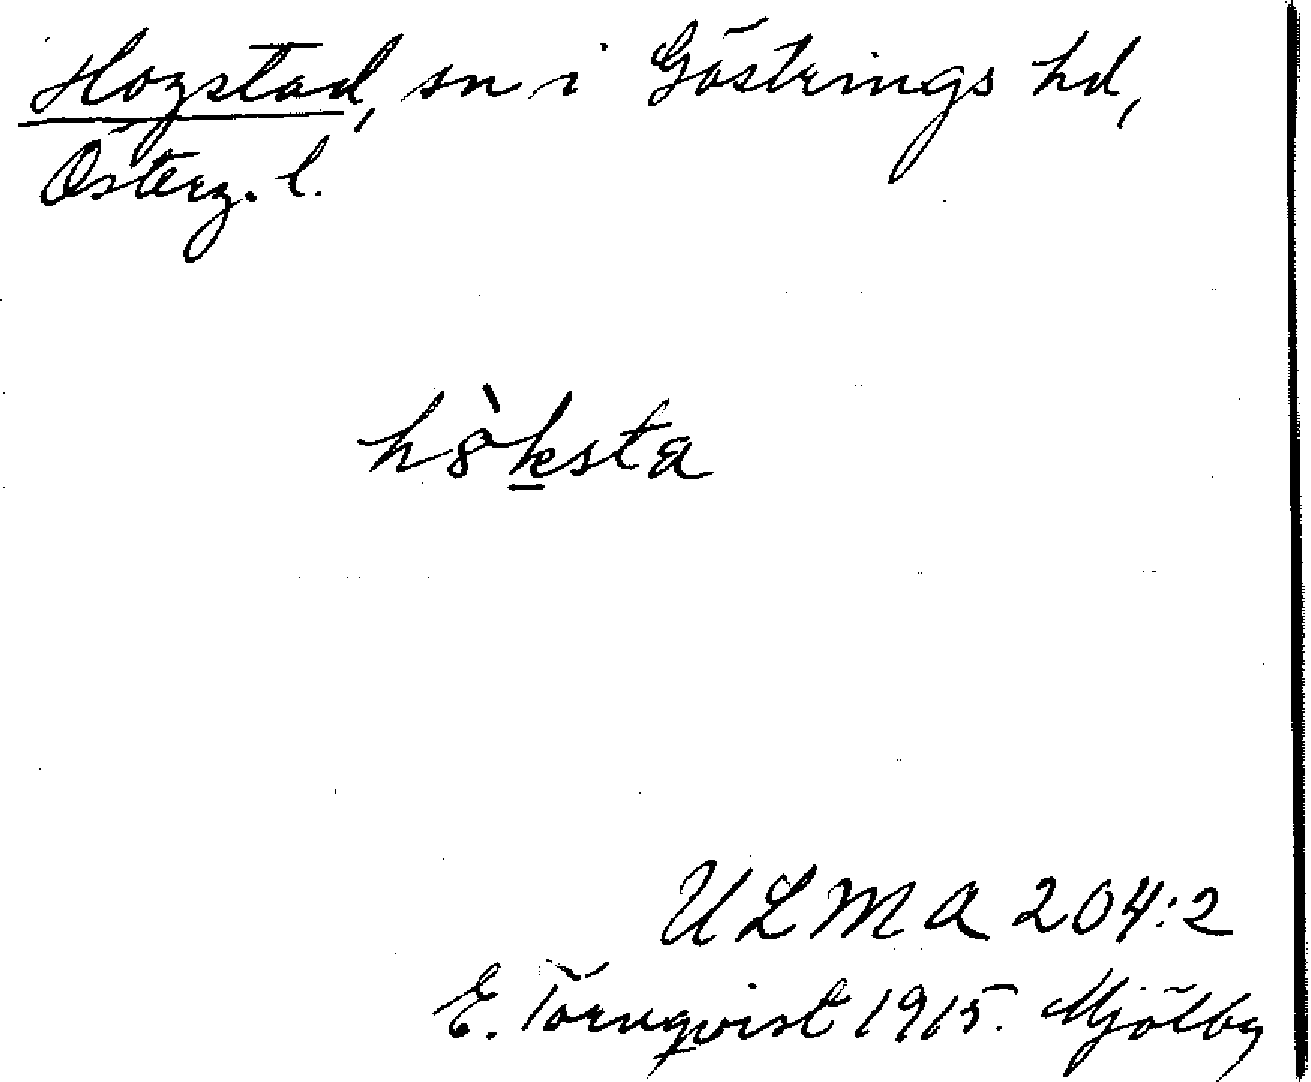 Hogstad, sn i Göstrings hd,
Österg. l.
hö̀k̲sta
ULMA 204:2
E. Törnqvist 1915. Mjölby